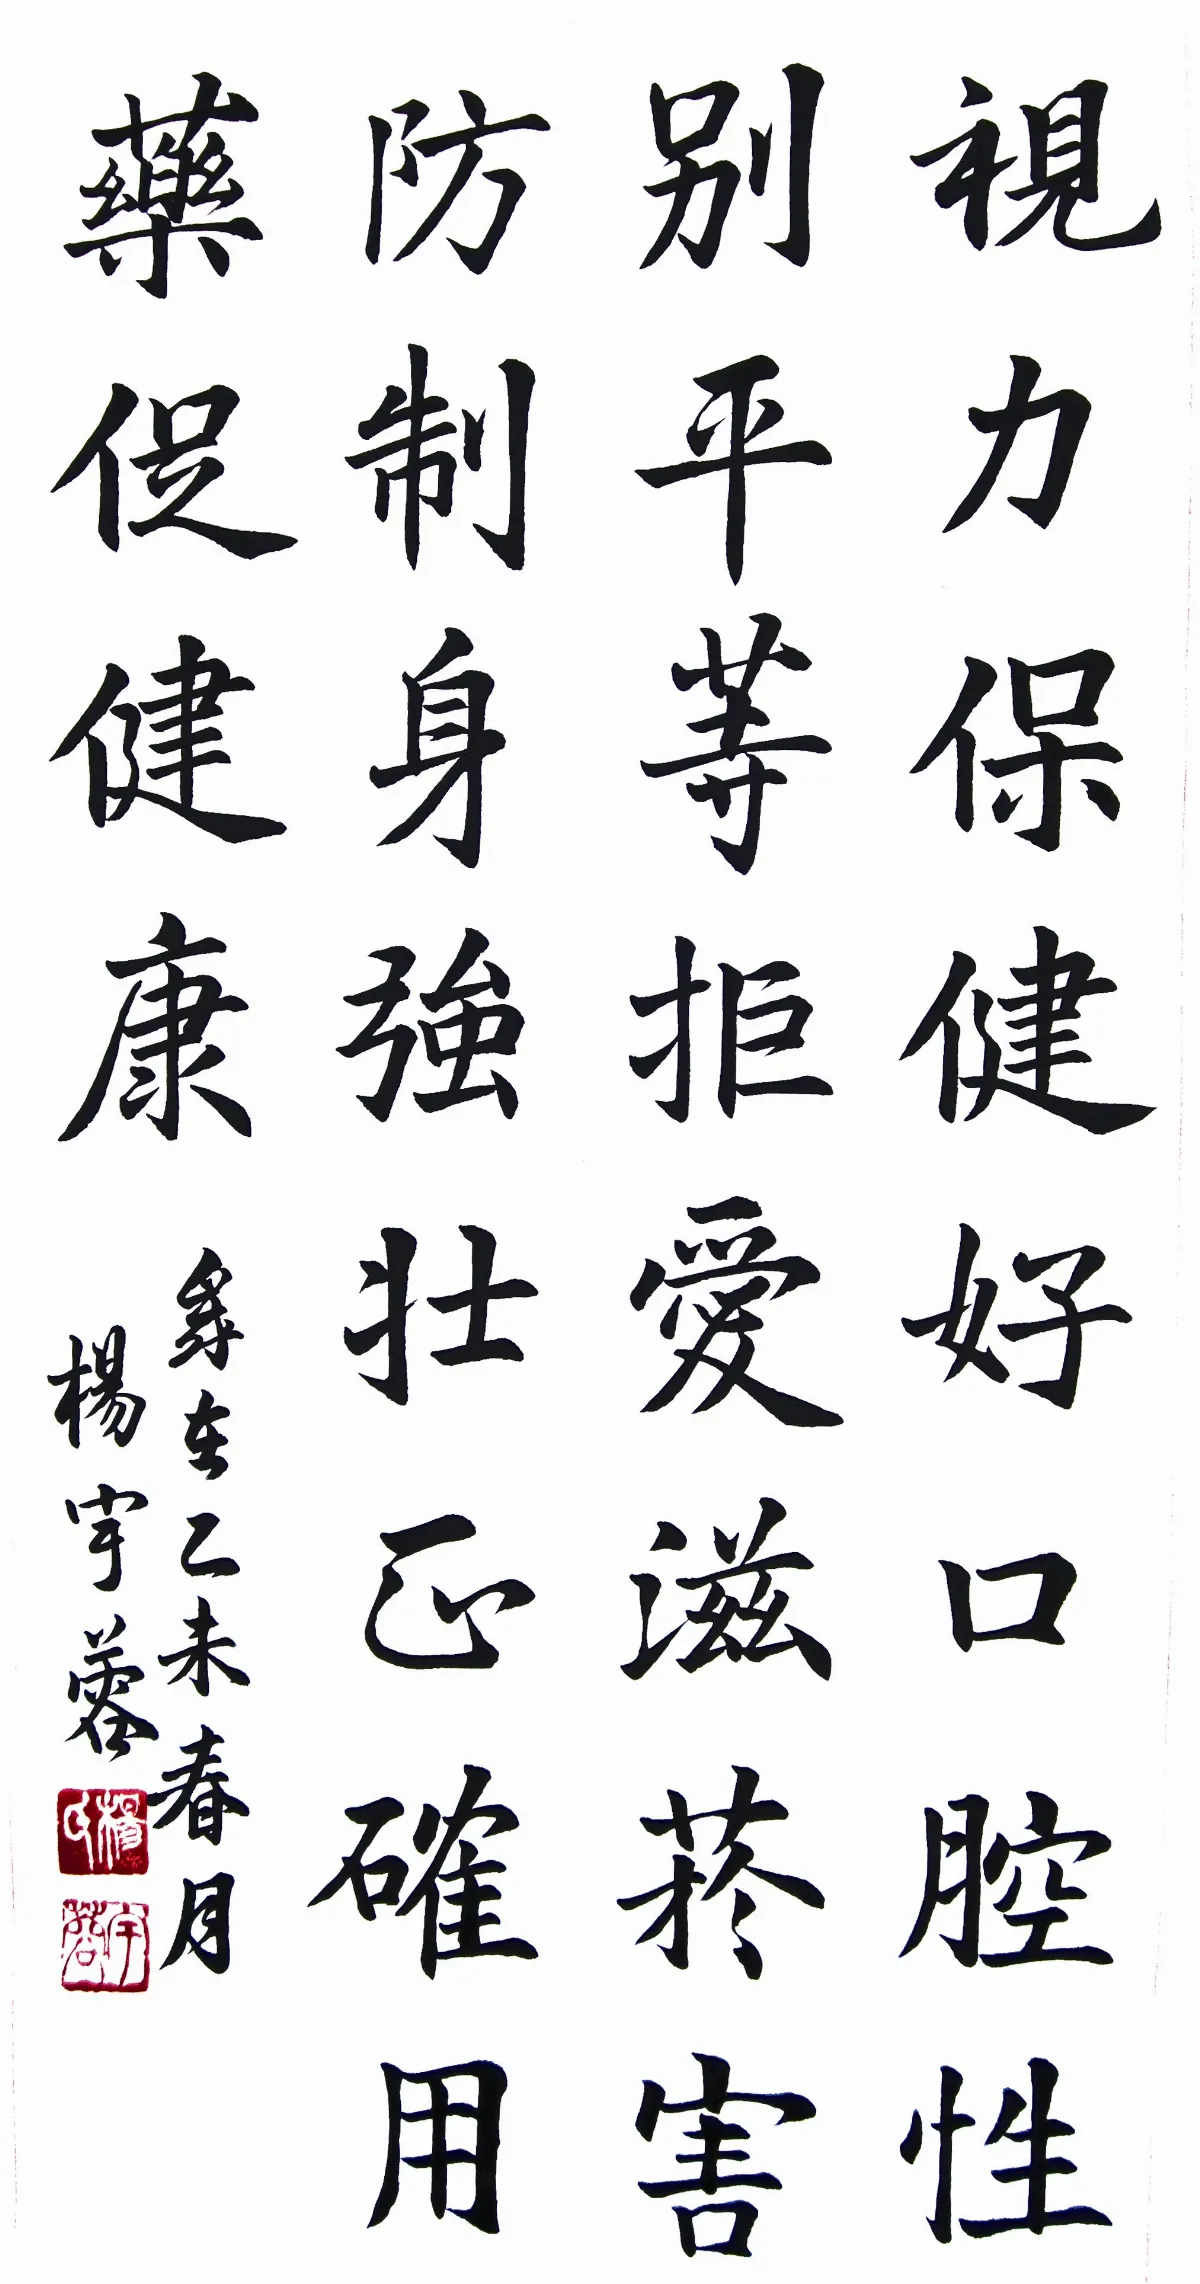 視力保健好口腔性
別平等拒愛滋菸害
防制身強壯正確用
藥促健康
歲在乙未春月
楊宇蓉
楊氏
宇蓉